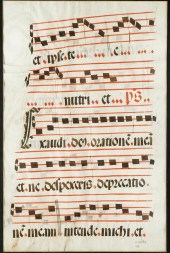 et . ipse . te
nutri . et . ps .
Exaudi . deus . orationē . meā
et . ne . despexeris . deprecatio
nē . meam intende . michi . et .